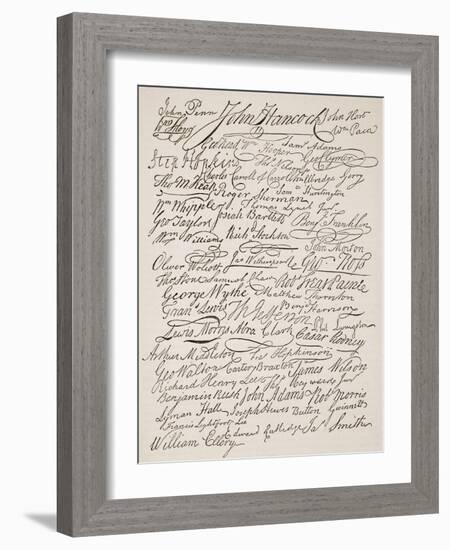 John Penn John Hancock John Hart
Wm Floyd Wm Paca
Geo Read Wm Hooper Sam Adams
Step Hopkins Thos Nelson jr Geo Clymer
Charles Carroll of Carrollton Elbridge Gerry
Tho M Kean Roger Sherman Sam Huntington
Wm Whipple Thomas Lynch Junr
Geo Taylor Josiah Bartlett Benj Franklin
Wm Williams Richd Stockton John Morton
Oliver Wolcott Jno Witherspoon Geo Ross
Thos Stone Samuel Chase Robt Treat Paine
George Wythe Matthew Thornton
Fran Lewis Th Jefferson Benj Harrison
Lewis Morris Abra Clark Phil Livingston
Caesar Rodney
Arthur Middleton Fra Hopkinson
Geo Walton Carter Braxton James Wilson
Richard Henry Lee Thos Heyward Junr
Benjamin Rush John Adams Robt Morris
Lyman Hall Joseph Hewes Button Gwinnett
Francis Lightfoot Lee
Edward Rutledge Ja Smith
William Ellery